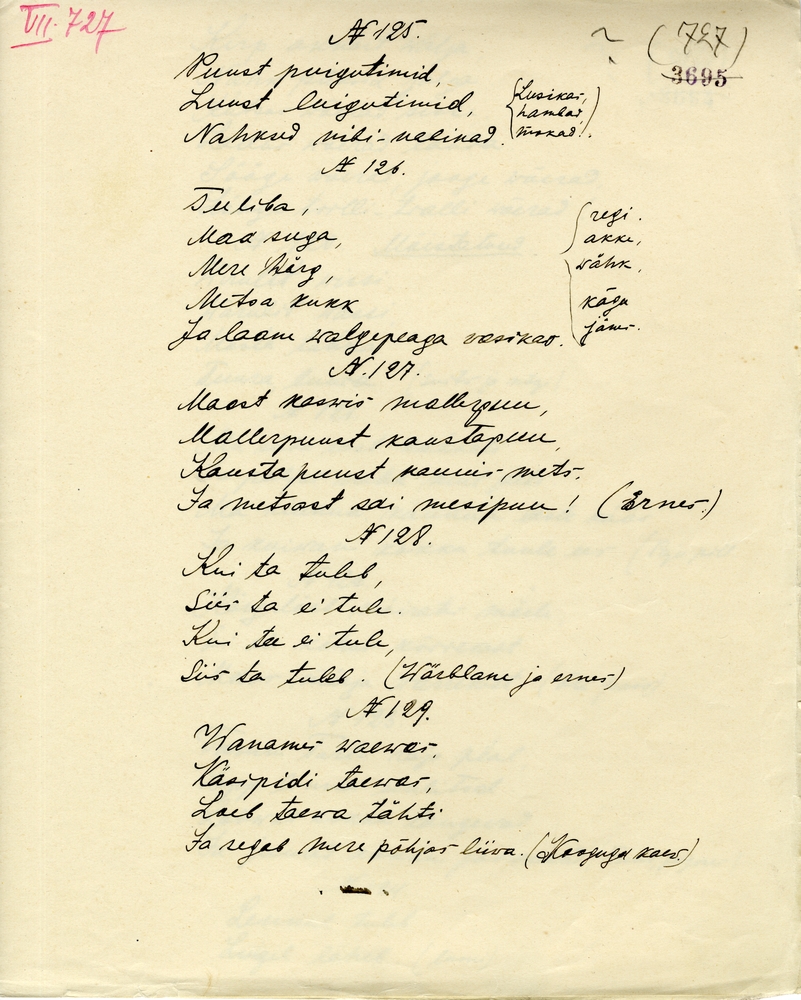 VII. 727
(727)
3695
№ 125.
Puust puigutimid,
Luust luigutimid,
Nahksed nibi-nabinad.
(Lusikas,
hambad,
mokad.)
№ 126.
Tuliba,
Maa suga,
Mere Härg,
Metsa kukk
Ja laane walgepeaga wasikas.
regi.
akke,
wähk,
kägu
jänes.
№ 127.
Maast kaswis mallerpuu,
Mallerpuust kaustapuu,
Kaustapuust kaunis mets,
Ja metsast sai mesipuu! (Ernes.)
№ 128.
Kui ta tuleb,
Siis ta ei tule.
Kui ta ei tule,
Siis ta tuleb. (Wärblane ja ernes)
№ 129.
Wanames waewas,
Käsipidi taewas,
Loeb taewa tähti
Ja segab mere põhjas liiwa. (Kooguga kaew.)